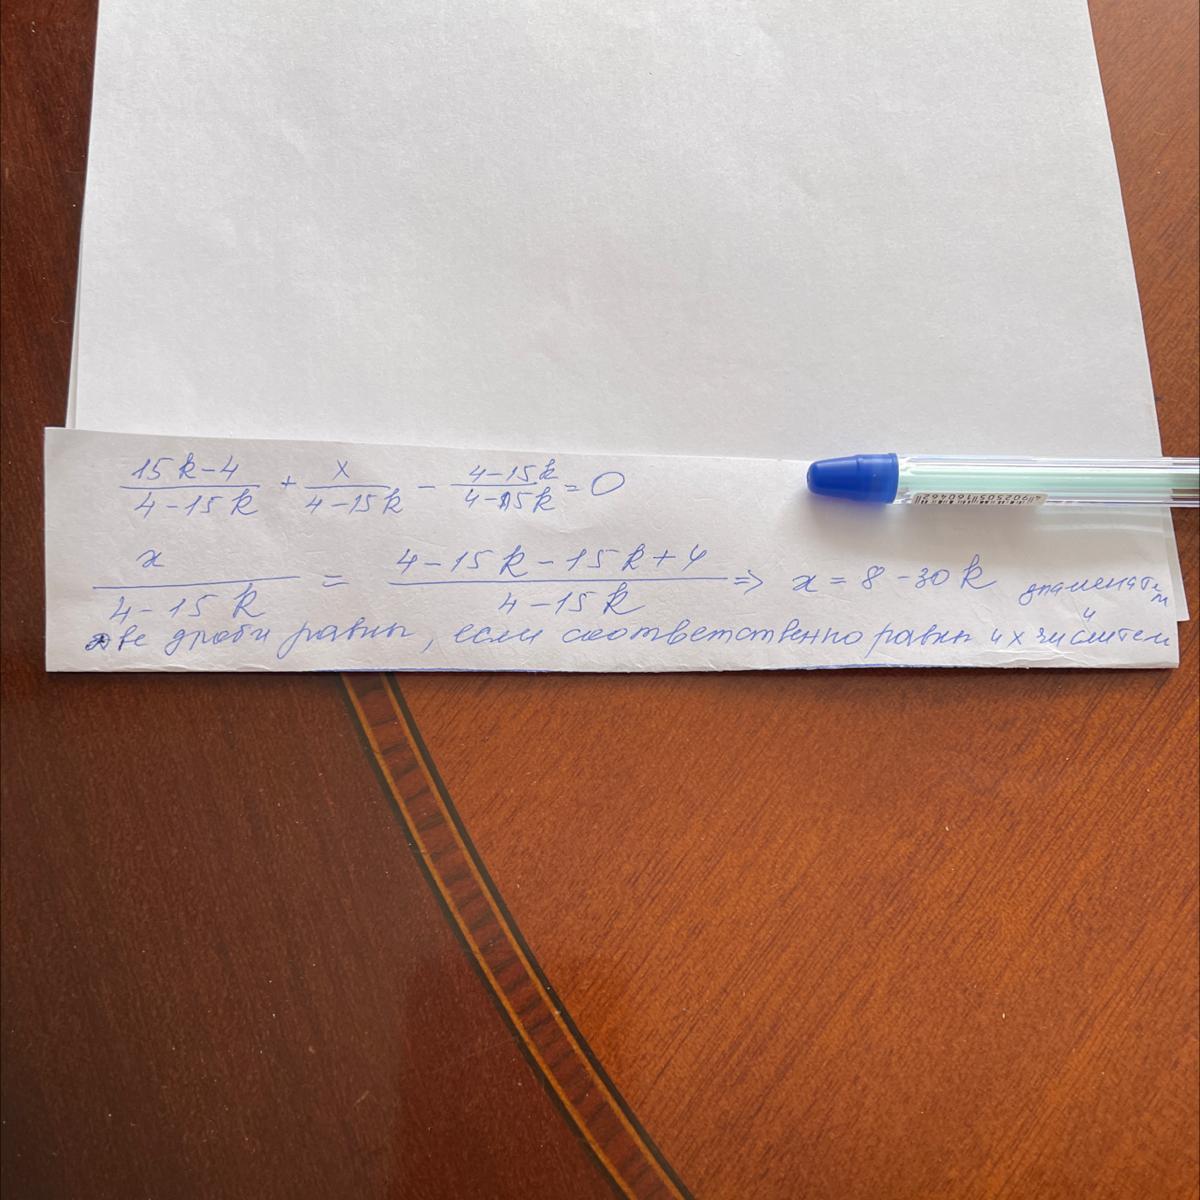 15k-4/4-15k + x/4-15k - 4-15k/4-15k = 0
x/4-15k = 4-15k-15k+4/4-15k => x = 8-30k
знаменатели
и
две дроби равны, если соответственно равны их числители